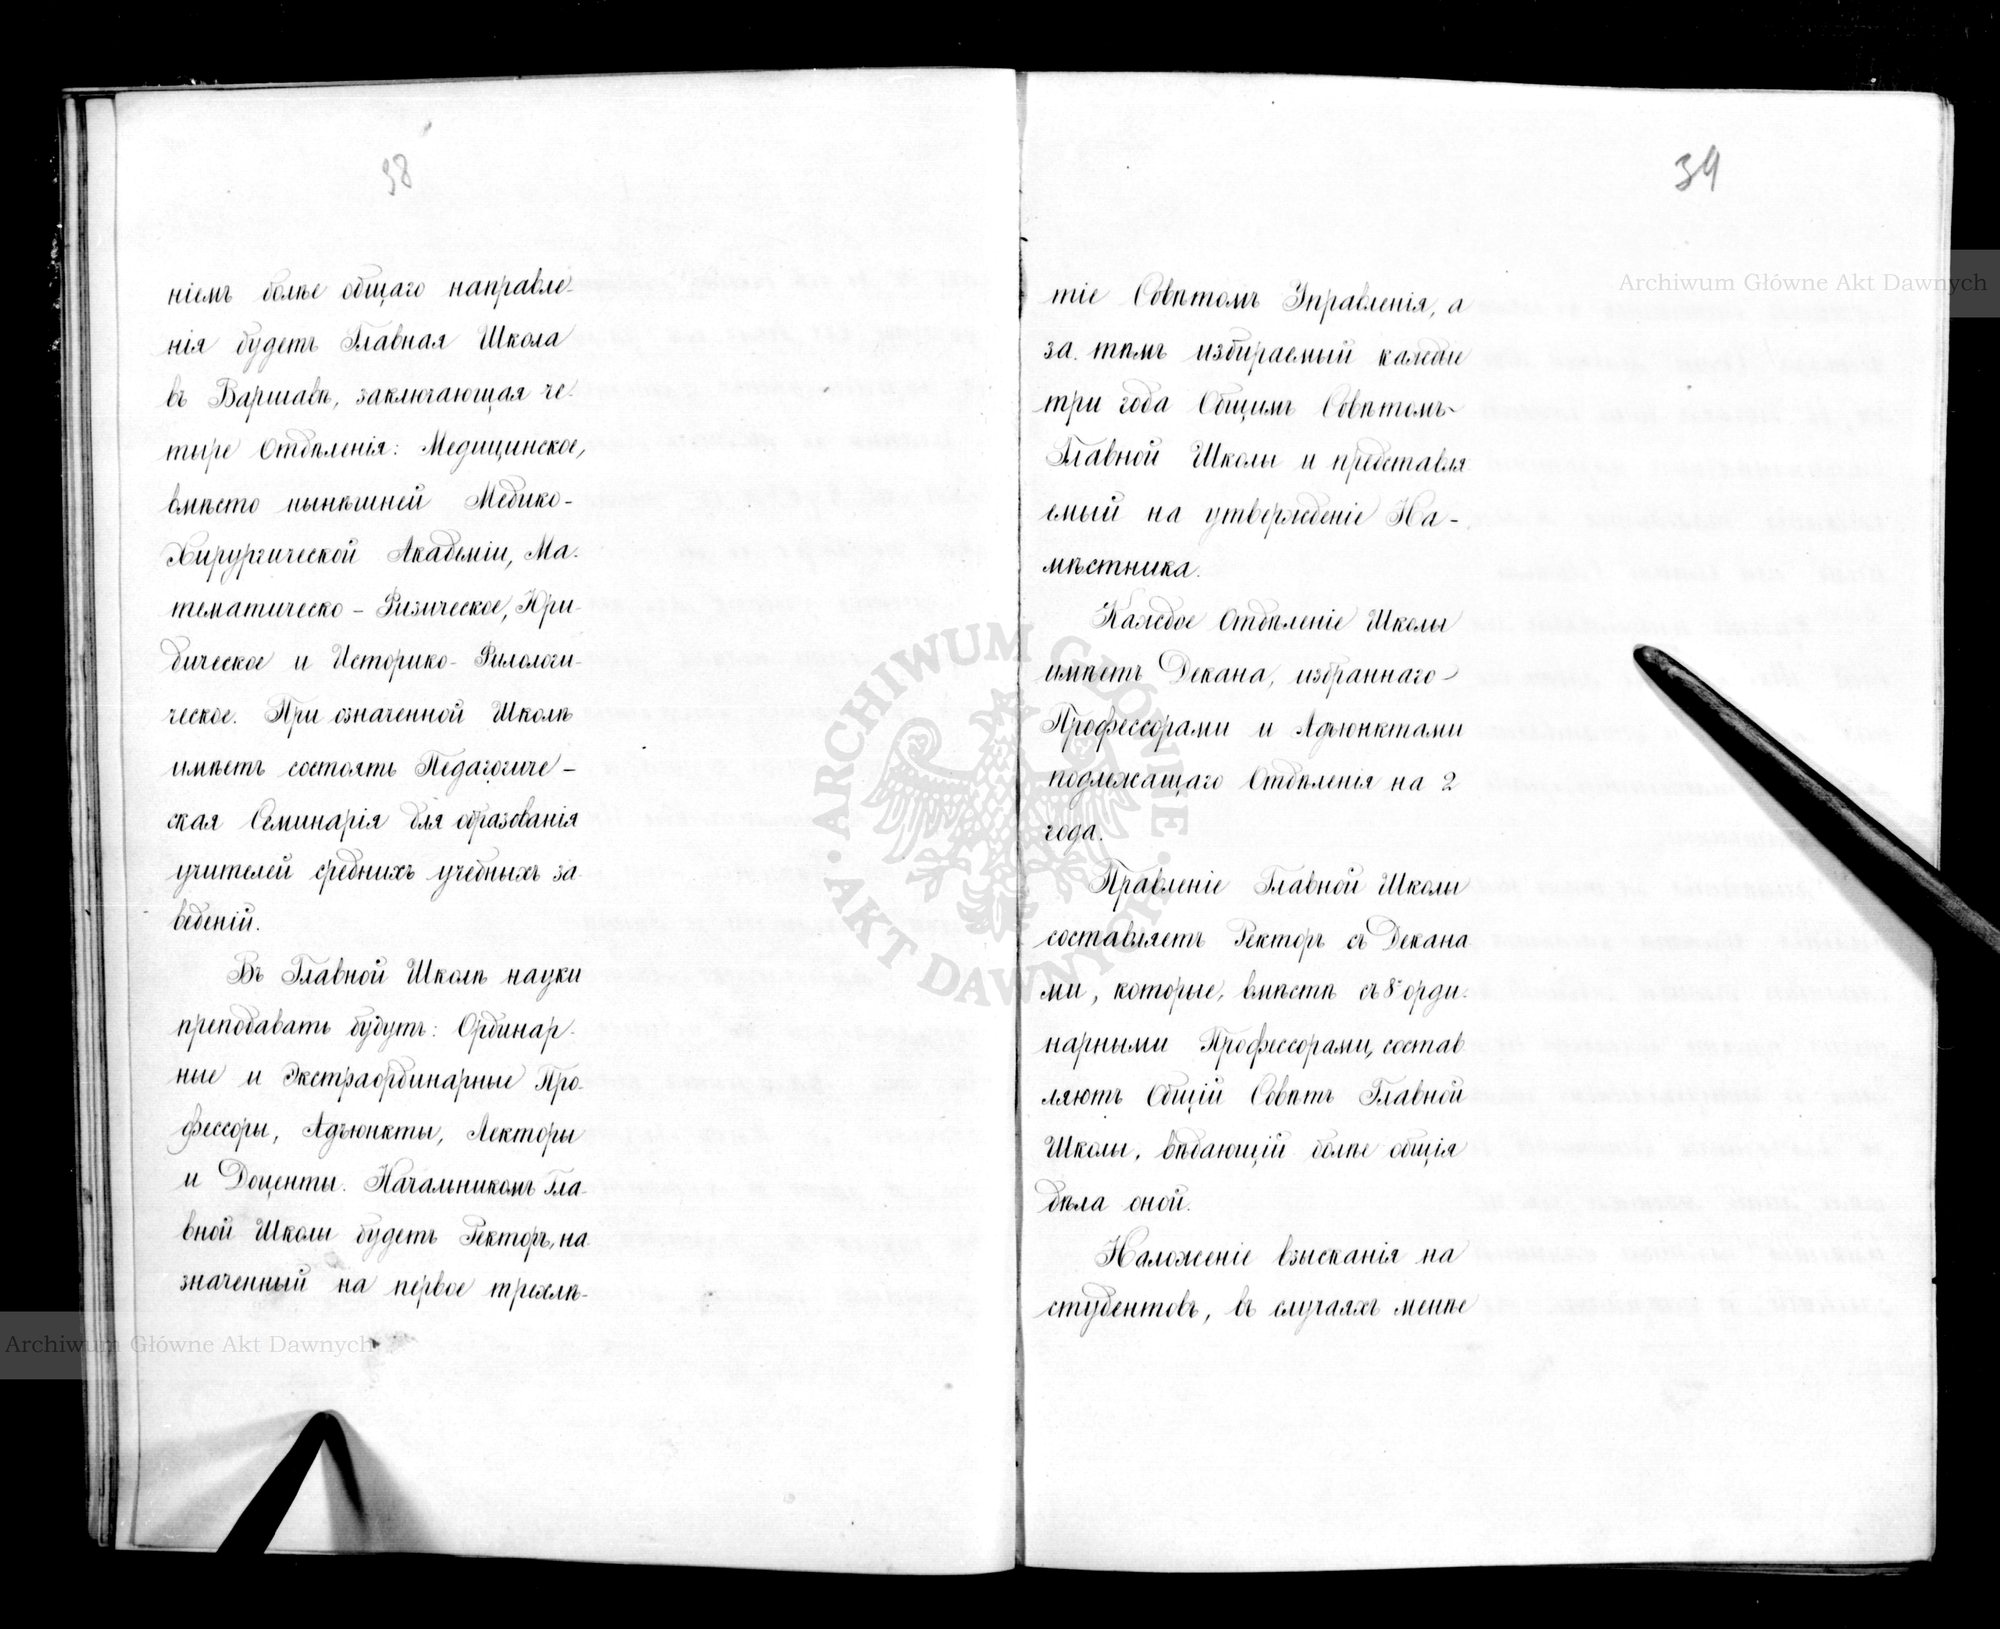 38
ніемъ болѣе общаго направле-
нія будетъ Главная Школа
въ Варшавѣ, заключающая че-
тыре Отдѣленія: Медицинское,
вмѣсто нынѣшней Медико-
Хирургической Академіи, Ма-
тематическо-Физическое, Юри-
дическое и Историко-Филологи-
ческое. При означенной Школѣ
имѣетъ состоять Педагогиче-
ская Семинарія для образованія
учителей среднихъ учебныхъ за-
веденій.
Въ Главной Школѣ науки
преподавать будутъ: Ординар-
ные и Экстраординарные Про-
фессоры, Адъюнкты, Лекторы
и Доценты. Начальникомъ Гла-
вной Школы будетъ Ректоръ, на
значенный на первое трехлѣ-
39
тіе Совѣтомъ Управленія, а
за тѣмъ избираемый каждые
три года Общимъ Совѣтомъ
Главной Школы и представля
емый на утвержденіе На-
мѣстника.
Каждое Отдѣленіе Школы
имѣетъ Декана, избраннаго
Профессорами и Адъюнктами
подлежащаго Отдѣленія на 2
года.
Правленіе Главной Школы
составляетъ Ректоръ съ Декана
ми, которые, вмѣстѣ съ 8 орди-
нарными Профессорами, состав
ляютъ Общій Совѣтъ Главной
Школы, вѣдающій болѣе общія
дѣла оной.
Наложеніе взысканія на
студентовъ, въ случаяхъ менѣе
Archiwum Główne Akt Dawnych
Archiwum Główne Akt Dawnych
ARCHIWUM GŁÓWNE
AKT DAWNYCH